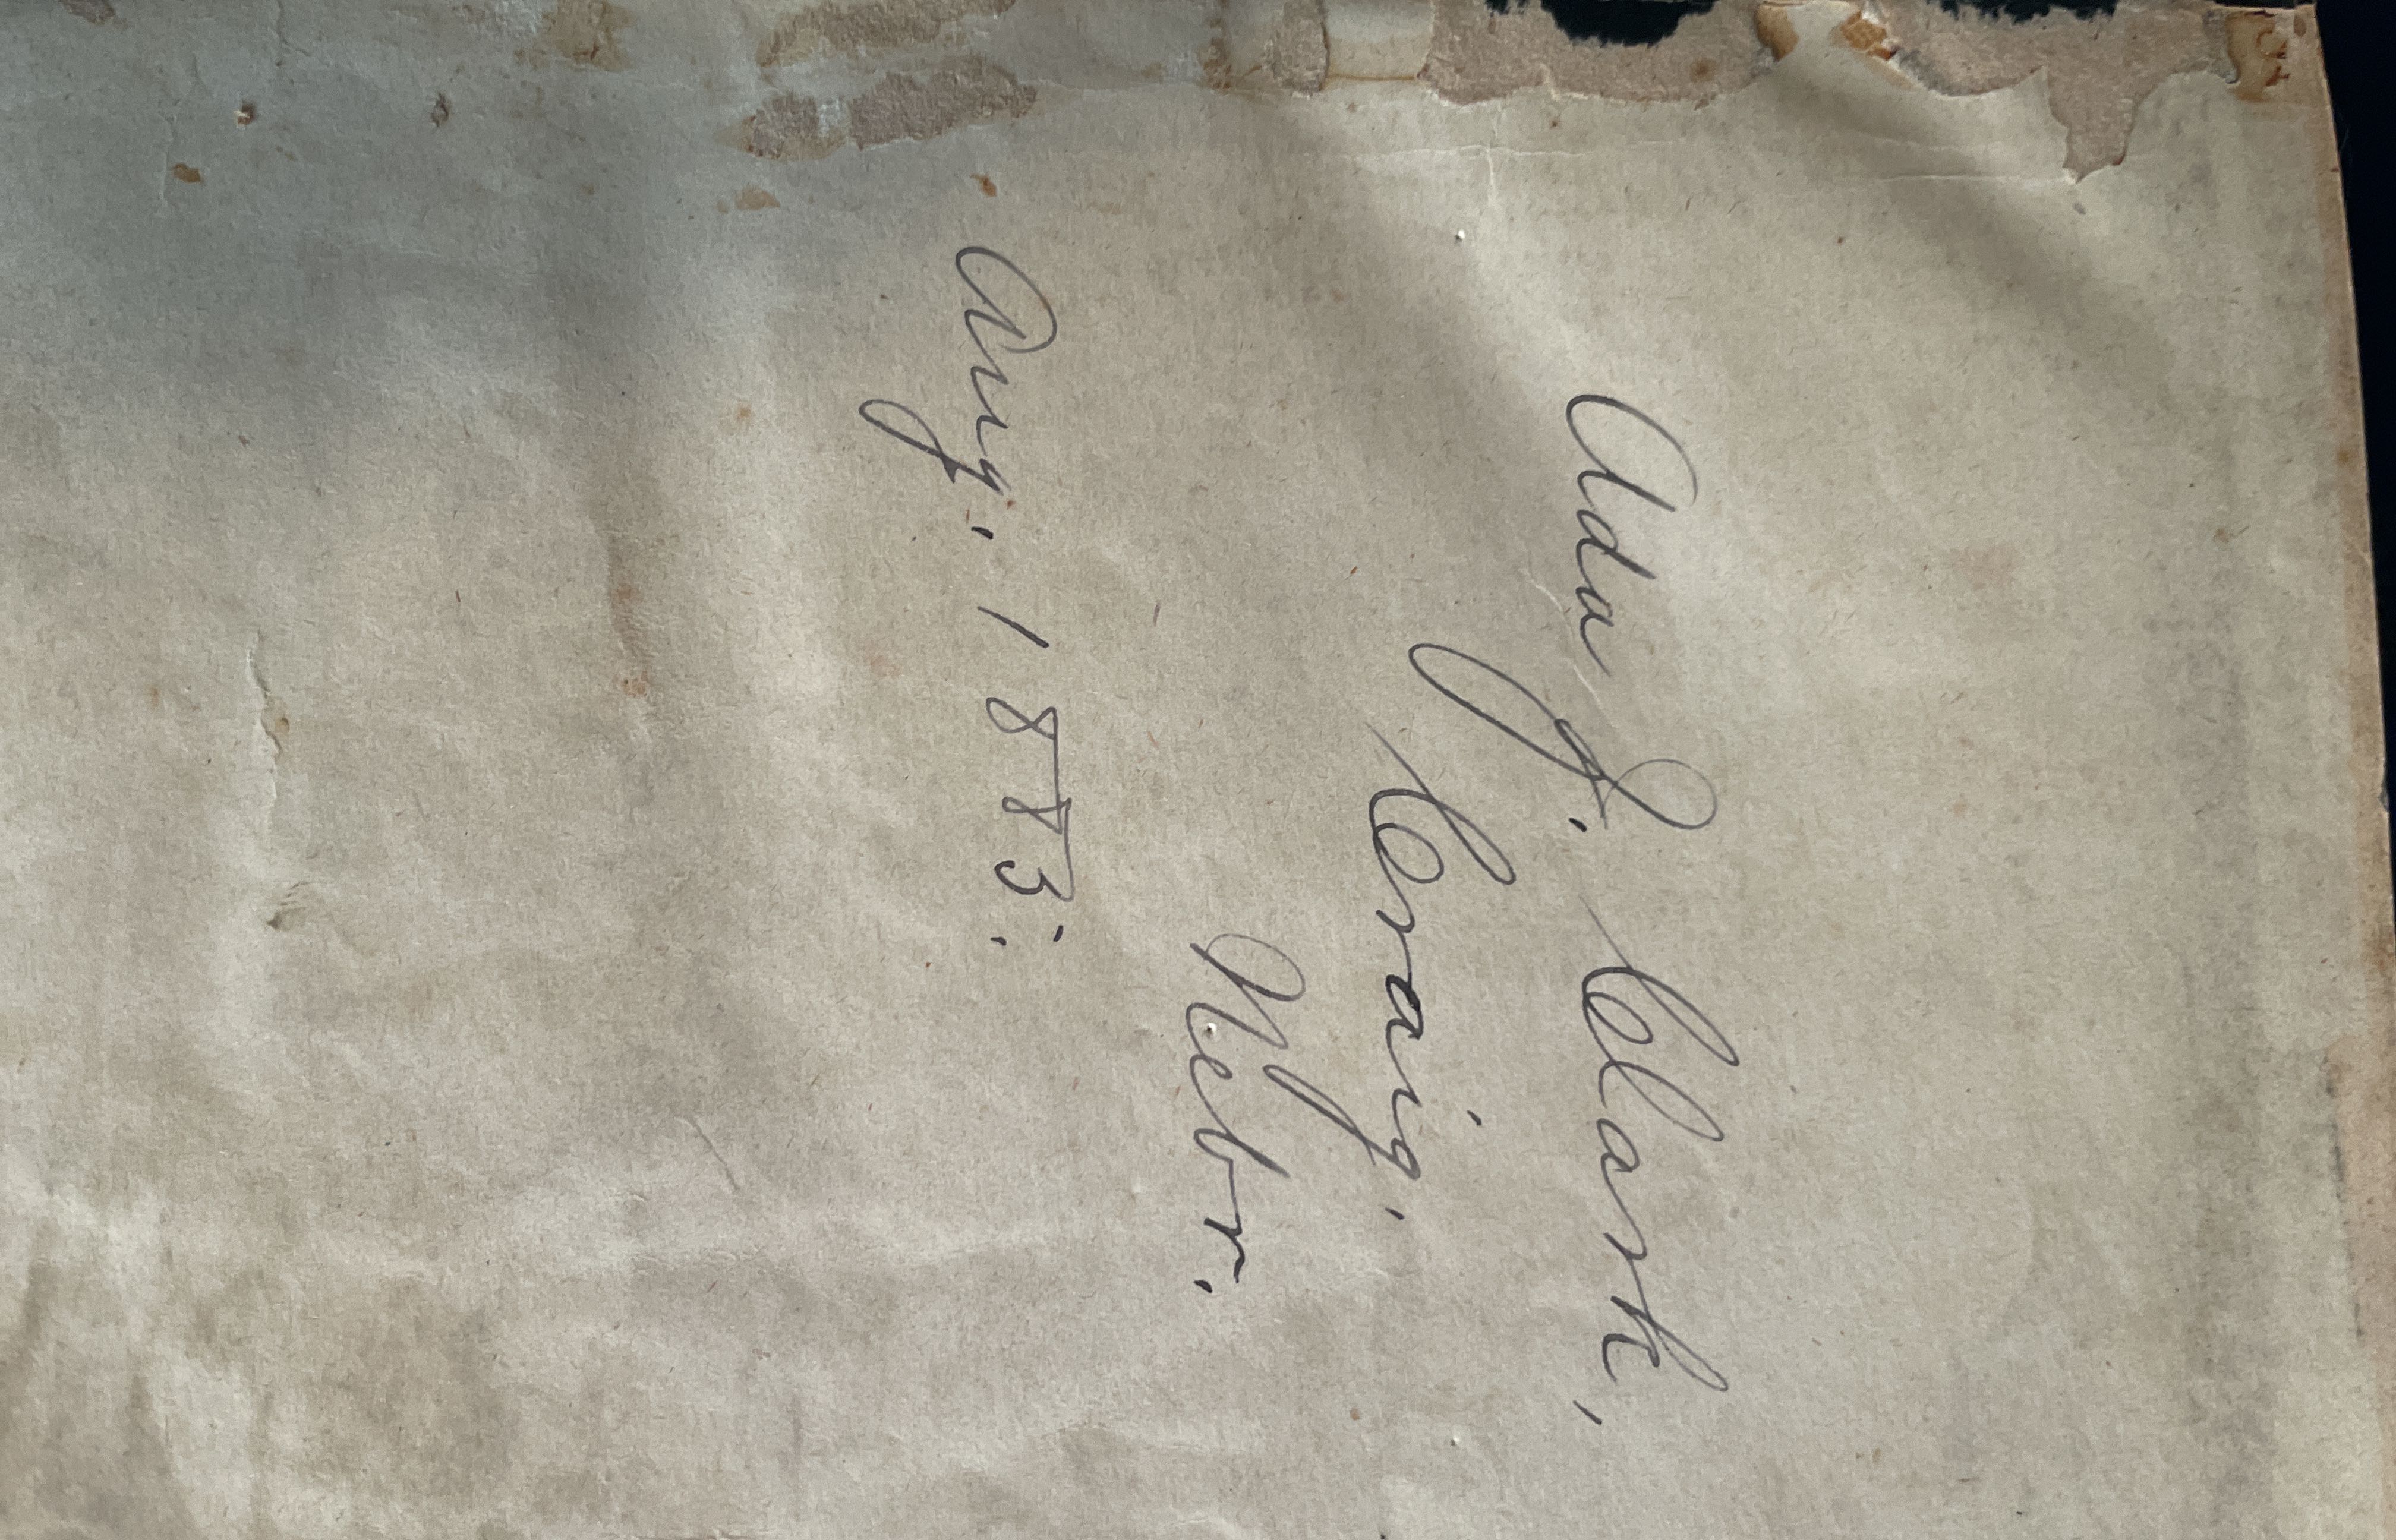 Ada J. Clark,
Craig,
Nebr.
Aug. 1883.